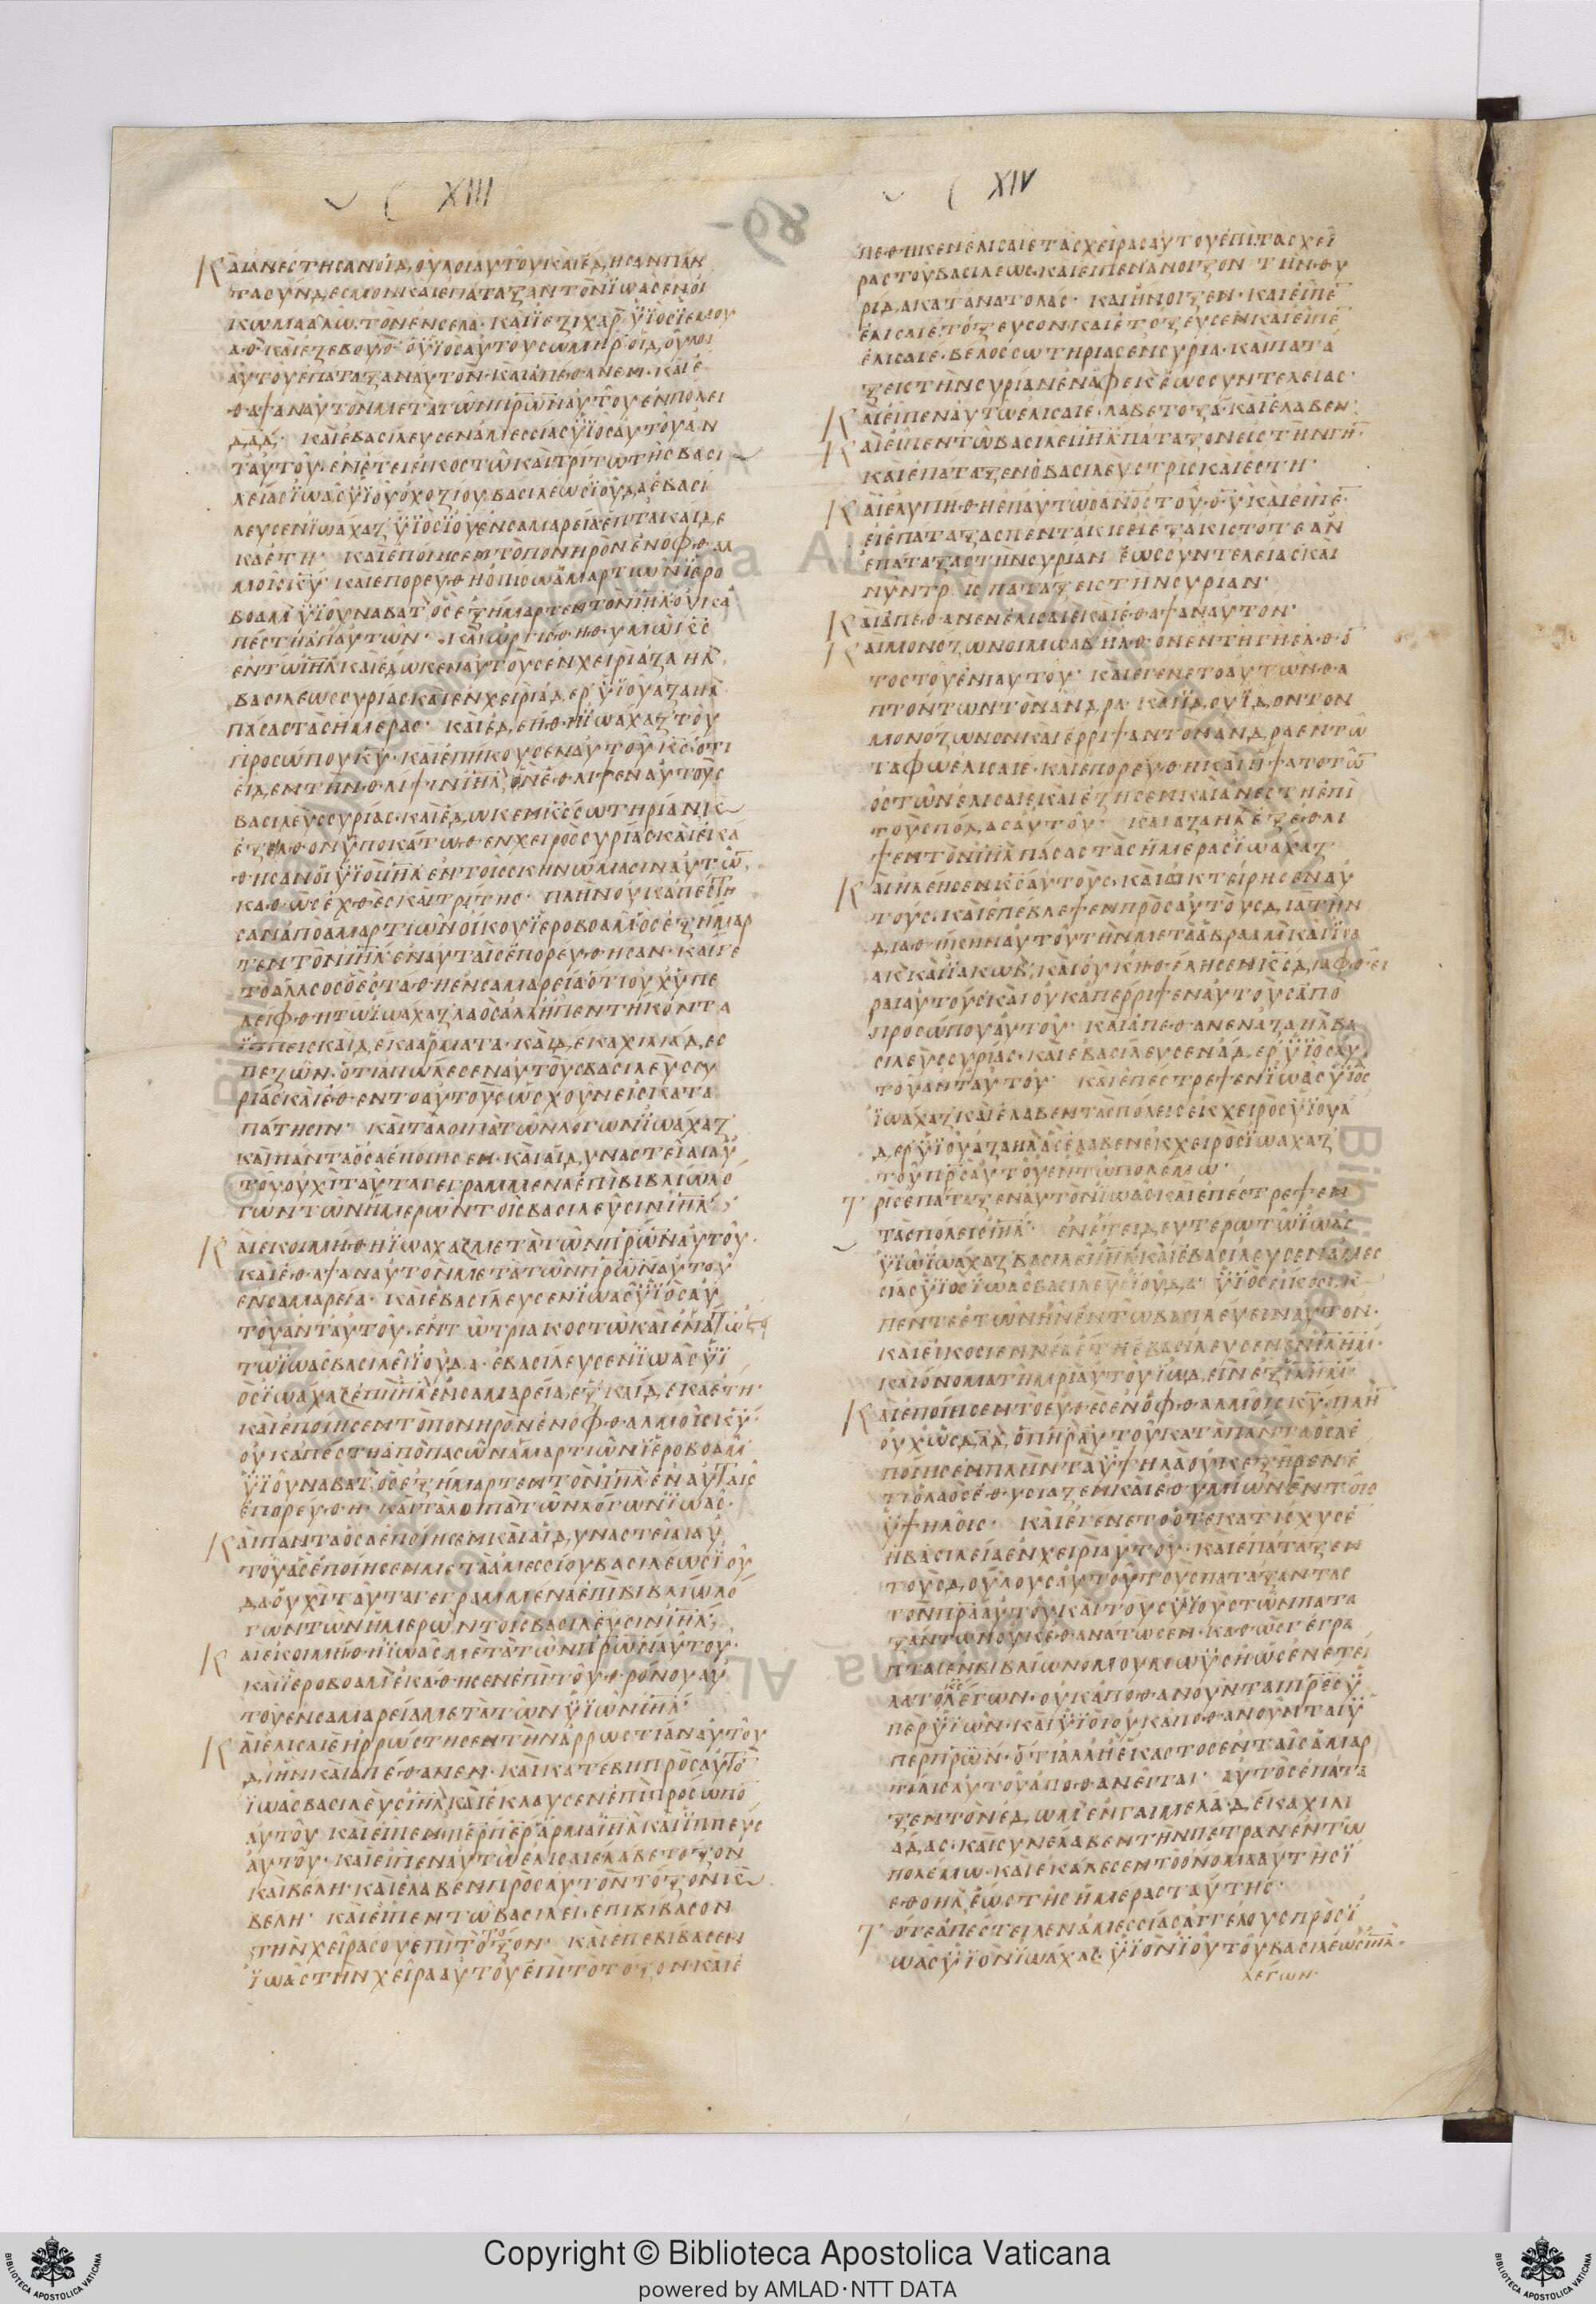 XIII
ΚΑΙΑΝΕϹΤΗϹΑΝΟΙΔΟΥΛΟΙΑΥΤΟΥΚΑΙΕΔΗϹΑΝΠΑΝ
ΤΑϹΥΝΔΕϹΜΟΝΚΑΙΕΠΑΤΑΞΑΝΤΟΝΪΩΑϹΕΝΟΙ
ΚΩΜΑΑΛΩ·ΤΟΝΕΝϹΕΛΑ·ΚΑΙΪΕΖΙΧΑΡ ΫΪΟϹΪΕΜΟΥ
ΑΘ ΚΑΙΕΖΕΒΟΥΘ ΟΫΪΟϹΑΥΤΟΥϹΩΜΗΡ ΟΙΔΟΥΛΟΙ
ΑΥΤΟΥΕΠΑΤΑΞΑΝΑΥΤΟΝ·ΚΑΙΑΠΕΘΑΝΕΝ·ΚΑΙΕ
ΘΑΨΑΝΑΥΤΟΝΜΕΤΑΤΩΝΠΡΩΝΑΥΤΟΥΕΝΠΟΛΕΙ
ΔΑΔ· ΚΑΙΕΒΑϹΙΛΕΥϹΕΝΑΜΕϹϹΙΑϹΫΪΟϹΑΥΤΟΥΑΝ
ΤΑΥΤΟΥ·ΕΝΕΤΕΙΕΙΚΟϹΤΩΚΑΙΤΡΙΤΩΤΗϹΒΑϹΙ
ΛΕΙΑϹΪΩΑϹΫΪΟΥΟΧΟΖΙΟΥΒΑϹΙΛΕΩϹΪΟΥΔΑΕΒΑϹΙ
ΛΕΥϹΕΝΪΩΑΧΑΖ ΫΪΟϹΪΟΥΕΝϹΑΜΑΡΕΙΑΕΠΤΑΚΑΙΔΕ
ΚΑΕΤΗ· ΚΑΙΕΠΟΙΗϹΕΝΤΟΠΟΝΗΡΟΝΕΝΟΦΘΑΛ
ΜΟΙϹΚΥ ΚΑΙΕΠΟΡΕΥΘΗΟΠΙϹΩΑΜΑΡΤΙΩΝΪΕΡΟ
ΒΟΑΜ ΫΪΟΥΝΑΒΑΤ ΟϹΕΞΗΜΑΡΤΕΝΤΟΝΙΗΛ·ΟΥΚΑ
ΠΕϹΤΗΑΠΑΥΤΩΝ· ΚΑΙΩΡΓΙϹΘΗΘΥΜΩΚϹ
ΕΝΤΩΙΗΛΚΑΙΕΔΩΚΕΝΑΥΤΟΥϹΕΝΧΕΙΡΙΑΖΑΗΛ
ΒΑϹΙΛΕΩϹϹΥΡΙΑϹΚΑΙΕΝΧΕΙΡΙΑΔΕΡ ΫΪΟΥΑΖΑΗΛ
ΠΑϹΑϹΤΑϹΗΜΕΡΑϹ· ΚΑΙΕΔΕΗΘΗΪΩΑΧΑΖ ΤΟΥ
ΠΡΟϹΩΠΟΥΚΥ·ΚΑΙΕΠΗΚΟΥϹΕΝΑΥΤΟΥΚϹ·ΟΤΙ
ΕΙΔΕΝΤΗΝΘΛΙΨΙΝΙΗΛ ΟΝΕΘΛΙΨΕΝΑΥΤΟΥϹ
ΒΑϹΙΛΕΥϹϹΥΡΙΑϹ·ΚΑΙΕΔΩΚΕΝΚϹϹΩΤΗΡΙΑΝΙΗΛ
ΕΞΗΛΘΟΝΫΠΟΚΑΤΩΘΕΝΧΕΙΡΟϹϹΥΡΙΑϹ·ΚΑΙΕΚΑ
ΘΗϹΑΝΟΙΫΪΟΙΙΗΛ ΕΝΤΟΙϹϹΚΗΝΩΜΑϹΙΝΑΥΤΩ
ΚΑΘΩϹΕΧΘΕϹΚΑΙΤΡΙΤΗϹ· ΠΛΗΝΟΥΚΑΠΕϹΤΗ
ϹΑΝΑΠΟΑΜΑΡΤΙΩΝΟΙΚΟΥΪΕΡΟΒΟΑΜΟϹΕΞΗΜΑΡ
ΤΕΝΤΟΝΙΗΛ ΕΝΑΥΤΑΙϹΕΠΟΡΕΥΘΗϹΑΝ·ΚΑΙΓΕ
ΤΟΑΛϹΟϹΟΕϹΤΑΘΗΕΝϹΑΜΑΡΕΙΑΟΤΙΟΥΧΫΠΕ
ΛΕΙΦΘΗΤΩΪΩΑΧΑΖΛΑΟϹΑΛΛΗΠΕΝΤΗΚΟΝΤΑ
ΪΠΠΕΙϹΚΑΙΔΕΚΑΑΡΜΑΤΑ·ΚΑΙΔΕΚΑΧΙΛΙΑΔΕϹ
ΠΕΖΩΝ·ΟΤΙΑΠΩΛΕϹΕΝΑΥΤΟΥϹΒΑϹΙΛΕΥϹϹΥ
ΡΙΑϹΚΑΙΕΘΕΝΤΟΑΥΤΟΥϹΩϹΧΟΥΝΕΙϹΚΑΤΑ
ΠΑΤΗϹΙΝ· ΚΑΙΤΑΛΟΙΠΑΤΩΝΛΟΓΩΝΪΩΑΧΑΖ
ΚΑΙΠΑΝΤΑΟϹΑΕΠΟΙΗϹΕΝ·ΚΑΙΑΙΔΥΝΑϹΤΕΙΑΙΑΥ
ΤΟΥΟΥΧΙΤΑΥΤΑΓΕΓΡΑΜΜΕΝΑΕΠΙΒΙΒΛΙΩΛΟ
ΓΩΝΤΩΝΗΜΕΡΩΝΤΟΙϹΒΑϹΙΛΕΥϹΙΝΙΗΛ
ΚΑΙΕΚΟΙΜΗΘΗΪΩΑΧΑΖΜΕΤΑΤΩΝΠΡΩΝΑΥΤΟΥ·
ΚΑΙΕΘΑΨΑΝΑΥΤΟΝΜΕΤΑΤΩΝΠΡΩΝΑΥΤΟΥ
ΕΝϹΑΜΑΡΕΙΑ· ΚΑΙΕΒΑϹΙΛΕΥϹΕΝΪΩΑϹΫΪΟϹΑΥ
ΤΟΥΑΝΤΑΥΤΟΥ·ΕΝΤΩΤΡΙΑΚΟϹΤΩΚΑΙΕΝΑΤΩ
ΤΩΪΩΑϹΒΑϹΙΛΕΙΪΟΥΔΑ·ΕΒΑϹΙΛΕΥϹΕΝΪΩΑϹΫΪ
ΟϹΪΩΑΧΑΖΕΠΙΙΗΛΕΝϹΑΜΑΡΕΙΑ·ΕΞΚΑΙΔΕΚΑΕΤΗ·
ΚΑΙΕΠΟΙΗϹΕΝΤΟΠΟΝΗΡΟΝΕΝΟΦΘΑΛΜΟΙϹΚΥ·
ΟΥΚΑΠΕϹΤΗΑΠΟΠΑϹΩΝΑΜΑΡΤΙΩΝΪΕΡΟΒΟΑΜ
ΫΪΟΥΝΑΒΑΤ·ΟϹΕΞΗΜΑΡΤΕΝΤΟΝΙΗΛ ΕΝΑΥΤΑΙϹ
ΕΠΟΡΕΥΘΗ· ΚΑΙΤΑΛΟΙΠΑΤΩΝΛΟΓΩΝΪΩΑϹ·
ΚΑΙΠΑΝΤΑΟϹΑΕΠΟΙΗϹΕΝΚΑΙΑΙΔΥΝΑϹΤΕΙΑΙΑΥ
ΤΟΥΑϹΕΠΟΙΗϹΕΝΜΕΤΑΑΜΕϹϹΙΟΥΒΑϹΙΛΕΩϹΪΟΥ
ΔΑΟΥΧΙΤΑΥΤΑΓΕΓΡΑΜΜΕΝΑΕΠΙΒΙΒΛΙΩΛΟ
ΓΩΝΤΩΝΗΜΕΡΩΝΤΟΙϹΒΑϹΙΛΕΥϹΙΝΙΗΛ
ΚΑΙΕΚΟΙΜΗΘΗΪΩΑϹΜΕΤΑΤΩΝΠΡΩΝΑΥΤΟΥ·
ΚΑΙΪΕΡΟΒΟΑΜΕΚΑΘΗϹΕΝΕΠΙΤΟΥΘΡΟΝΟΥΑΥ
ΤΟΥΕΝϹΑΜΑΡΕΙΑΜΕΤΑΤΩΝΫΪΩΝΙΗΛ
ΚΑΙΕΛΙϹΑΙΕΗΡΡΩϹΤΗϹΕΝΤΗΝΑΡΡΩϹΤΙΑΝΑΥΤΟΥ
ΔΙΗΝΚΑΙΑΠΕΘΑΝΕΝ·ΚΑΙΚΑΤΕΒΗΠΡΟϹΑΥΤΟ
ΪΩΑϹΒΑϹΙΛΕΥϹΙΗΛ ΚΑΙΕΚΛΑΥϹΕΝΕΠΙΠΡΟϹΩΠΟ
ΑΥΤΟΥ ΚΑΙΕΙΠΕΝΠΕΡΠΕΡ ΑΡΜΑΙΗΛΚΑΙΪΠΠΕΥϹ
ΑΥΤΟΥ·ΚΑΙΕΙΠΕΝΑΥΤΩΕΛΙϹΑΙΕΛΑΒΕΤΟΞΟΝ
ΚΑΙΒΕΛΗ·ΚΑΙΕΛΑΒΕΝΠΡΟϹΑΥΤΟΝΤΟΞΟΝΚ
ΒΕΛΗ· ΚΑΙΕΙΠΕΝΤΩΒΑϹΙΛΕΙ·ΕΠΙΒΙΒΑϹΟΝ
ΤΗΝΧΕΙΡΑϹΟΥΕΠΙΤΟΤΟΞΟΝ· ΚΑΙΕΠΕΒΙΒΑϹΕΝ
ΪΩΑϹΤΗΝΧΕΙΡΑΑΥΤΟΥΕΠΙΤΟΤΟΞΟΝ·ΚΑΙΕ
XIV
ΠΕΘΗΚΕΝΕΛΙϹΑΙΕΤΑϹΧΕΙΡΑϹΑΥΤΟΥΕΠΙΤΑϹΧΕΙ
ΡΑϹΤΟΥΒΑϹΙΛΕΩϹ·ΚΑΙΕΙΠΕΝΑΝΟΙΞΟΝ ΤΗΝΘΥ
ΡΙΔΑΚΑΤΑΝΑΤΟΛΑϹ· ΚΑΙΗΝΟΙΞΕΝ·ΚΑΙΕΙΠΕ
ΕΛΙϹΑΙΕΤΟΞΕΥϹΟΝΚΑΙΕΤΟΞΕΥϹΕΝΚΑΙΕΙΠΕ
ΕΛΙϹΑΙΕ·ΒΕΛΟϹϹΩΤΗΡΙΑϹΕΝϹΥΡΙΑ·ΚΑΙΠΑΤΑ
ΞΕΙϹΤΗΝϹΥΡΙΑΝΕΝΑΦΕΚΕΩϹϹΥΝΤΕΛΕΙΑϹ·
ΚΑΙΕΙΠΕΝΑΥΤΩΕΛΙϹΑΙΕ·ΛΑΒΕΤΟΞΑ·ΚΑΙΕΛΑΒΕΝ·
ΚΑΙΕΙΠΕΝΤΩΒΑϹΙΛΕΙΙΗΛΠΑΤΑΞΟΝΕΙϹΤΗΝΓΗ
ΚΑΙΕΠΑΤΑΞΕΝΟΒΑϹΙΛΕΥϹΤΡΙϹΚΑΙΕϹΤΗ·
ΚΑΙΕΛΥΠΗΘΗΕΠΑΥΤΩΟΑΝΟϹΤΟΥΘΥΚΑΙΕΙΠΕ
ΕΙΕΠΑΤΑΞΑϹΠΕΝΤΑΚΙϹΗΕΞΑΚΙϹΤΟΤΕΑΝ
ΕΠΑΤΑΞΑϹΤΗΝϹΥΡΙΑΝ ΕΩϹϹΥΝΤΕΛΕΙΑϹΚΑΙ
ΝΥΝΤΡΙϹ ΠΑΤΑΞΕΙϹΤΗΝϹΥΡΙΑΝ·
ΚΑΙΑΠΕΘΑΝΕΝΕΛΙϹΑΙΕΚΑΙΕΘΑΨΑΝΑΥΤΟΝ·
ΚΑΙΜΟΝΟΖΩΝΟΙΜΩΑΒ ΗΛΘΟΝΕΝΤΗΓΗΕΛΘΟ
ΤΟϹΤΟΥΕΝΙΑΥΤΟΥ· ΚΑΙΕΓΕΝΕΤΟΑΥΤΩΝΘΑ
ΠΤΟΝΤΩΝΤΟΝΑΝΔΡΑ·ΚΑΙΪΔΟΥΪΔΟΝΤΟΝ
ΜΟΝΟΖΩΝΟΝΚΑΙΕΡΡΙΨΑΝΤΟΝΑΝΔΡΑΕΝΤΩ
ΤΑΦΩΕΛΙϹΑΙΕ·ΚΑΙΕΠΟΡΕΥΘΗΚΑΙΗΨΑΤΟΤΩ
ΟϹΤΩΝΕΛΙϹΑΙΕΚΑΙΕΖΗϹΕΝΚΑΙΑΝΕϹΤΗΕΠΙ
ΤΟΥϹΠΟΔΑϹΑΥΤΟΥ· ΚΑΙΑΖΑΗΛΕΞΕΘΛΙ
ΨΕΝΤΟΝΙΗΛΠΑϹΑϹΤΑϹΗΜΕΡΑϹΪΩΑΧΑΖ
ΚΑΙΗΛΕΗϹΕΝΚϹΑΥΤΟΥϹ·ΚΑΙΩΚΤΕΙΡΗϹΕΝΑΥ
ΤΟΥϹ·ΚΑΙΕΠΕΒΛΕΨΕΝΠΡΟϹΑΥΤΟΥϹΔΙΑΤΗΝ
ΔΙΑΘΗΚΗΝΑΥΤΟΥΤΗΝΜΕΤΑΑΒΡΑΑΜΚΑΙΪϹΑ
ΑΚΚΑΙΪΑΚΩΒ·ΚΑΙΟΥΚΗΘΕΛΗϹΕΝΚϹΔΙΑΦΘΕΙ
ΡΑΙΑΥΤΟΥϹΚΑΙΟΥΚΑΠΕΡΡΙΨΕΝΑΥΤΟΥϹΑΠΟ
ΠΡΟϹΩΠΟΥΑΥΤΟΥ· ΚΑΙΑΠΕΘΑΝΕΝΑΖΑΗΛΒΑ
ϹΙΛΕΥϹϹΥΡΙΑϹ·ΚΑΙΕΒΑϹΙΛΕΥϹΕΝΑΔΕΡ ΫΪΟϹΑΥ
ΤΟΥΑΝΤΑΥΤΟΥ· ΚΑΙΕΠΕϹΤΡΕΨΕΝΪΩΑϹΫΪΟϹ
ΪΩΑΧΑΖΚΑΙΕΛΑΒΕΝΤΑϹΠΟΛΕΙϹΕΚΧΕΙΡΟϹΫΪΟΥΑ
ΔΕΡ ΫΪΟΥΑΖΑΗΛΑϹΕΛΑΒΕΝΕΚΧΕΙΡΟϹΪΩΑΧΑΖ
ΤΟΥΠΡϹΑΥΤΟΥΕΝΤΩΠΟΛΕΜΩ·
ΤΡΙϹΕΠΑΤΑΞΕΝΑΥΤΟΝΪΩΑϹΚΑΙΕΠΕϹΤΡΕΨΕΝ
ΤΑϹΠΟΛΕΙϹΙΗΛ· ΕΝΕΤΕΙΔΕΥΤΕΡΩΤΩΪΩΑϹ
ΫΪΩΪΩΑΧΑΖ ΒΑϹΙΛΕΙΙΗΛ ΚΑΙΕΒΑϹΙΛΕΥϹΕΝΑΜΕϹ
ϹΙΑϹΫΪΟϹΪΩΑϹΒΑϹΙΛΕΥϹΪΟΥΔΑ· ΫΪΟϹΕΙΚΟϹΙΚ
ΠΕΝΤΕΕΤΩΝΗΝΕΝΤΩΒΑϹΙΛΕΥΕΙΝΑΥΤΟΝ·
ΚΑΙΕΙΚΟϹΙΕΝΝΕΑΕΤΗΕΒΑϹΙΛΕΥϹΕΝΕΝΙΛΗΜ·
ΚΑΙΟΝΟΜΑΤΗΜΡΙΑΥΤΟΥΪΩΑΔΕΙΝΕΞΙΛΗΜ
ΚΑΙΕΠΟΙΗϹΕΝΤΟΕΥΘΕϹΕΝΟΦΘΑΛΜΟΙϹΚΥ·ΠΛΗ
ΟΥΧΩϹΔΑΔ ΟΠΗΡΑΥΤΟΥΚΑΤΑΠΑΝΤΑΟϹΑΕ
ΠΟΙΗϹΕΝΠΛΗΝΤΑΫΨΗΛΑΟΥΚΕΞΗΡΕΝΕ
ΤΙΟΛΑΟϹΕΘΥϹΙΑΖΕΝΚΑΙΕΘΥΜΙΩΝΕΝΤΟΙϹ
ΫΨΗΛΟΙϹ· ΚΑΙΕΓΕΝΕΤΟΟΤΕΚΑΤΙϹΧΥϹΕ
ΗΒΑϹΙΛΕΙΑΕΝΧΕΙΡΙΑΥΤΟΥ·ΚΑΙΕΠΑΤΑΞΕΝ
ΤΟΥϹΔΟΥΛΟΥϹΑΥΤΟΥΤΟΥϹΠΑΤΑΞΑΝΤΑϹ
ΤΟΝΠΡΑΑΥΤΟΥΚΑΙΤΟΥϹΫΪΟΥϹΤΩΝΠΑΤΑ
ΞΑΝΤΩΝΟΥΚΕΘΑΝΑΤΩϹΕΝ·ΚΑΘΩϹΓΕΓΡΑ
ΠΤΑΙΕΝΒΙΒΛΙΩΝΟΜΟΥΜΩΥϹΗΩϹΕΝΕΤΕΙ
ΛΑΤΟΚϹΛΕΓΩΝ·ΟΥΚΑΠΟΘΑΝΟΥΝΤΑΙΠΡΕϹΫ
ΠΕΡΫΪΩΝ·ΚΑΙΫΪΟΙΟΥΚΑΠΟΘΑΝΟΥΝΤΑΙΫ
ΠΕΡΠΡΩΝ·ΟΤΙΑΛΛΗΕΚΑϹΤΟϹΕΝΤΑΙϹΑΜΑΡ
ΤΙΑΙϹΑΥΤΟΥΑΠΟΘΑΝΕΙΤΑΙ· ΑΥΤΟϹΕΠΑΤΑ
ΞΕΝΤΟΝΕΔΩΜΕΝΓΑΙΜΕΛΑ·ΔΕΚΑΧΙΛΙ
ΑΔΑϹ·ΚΑΙϹΥΝΕΛΑΒΕΝΤΗΝΠΕΤΡΑΝΕΝΤΩ
ΠΟΛΕΜΩ·ΚΑΙΕΚΑΛΕϹΕΝΤΟΟΝΟΜΑΑΥΤΗϹΪ
ΕΘΟΗΛ ΕΩϹΤΗϹΗΜΕΡΑϹΤΑΥΤΗϹ·
ΤΟΤΕΑΠΕϹΤΕΙΛΕΝΑΜΕϹϹΙΑϹΑΓΓΕΛΟΥϹΠΡΟϹΪ
ΩΑϹΫΪΟΝΪΩΑΧΑΖΫΪΟΝΪΟΥΤΟΥΒΑϹΙΛΕΩϹΙΗΛ·
ΛΕΓΩΝ·
Copyright © Biblioteca Apostolica Vaticana
powered by AMLAD·NTT DATA